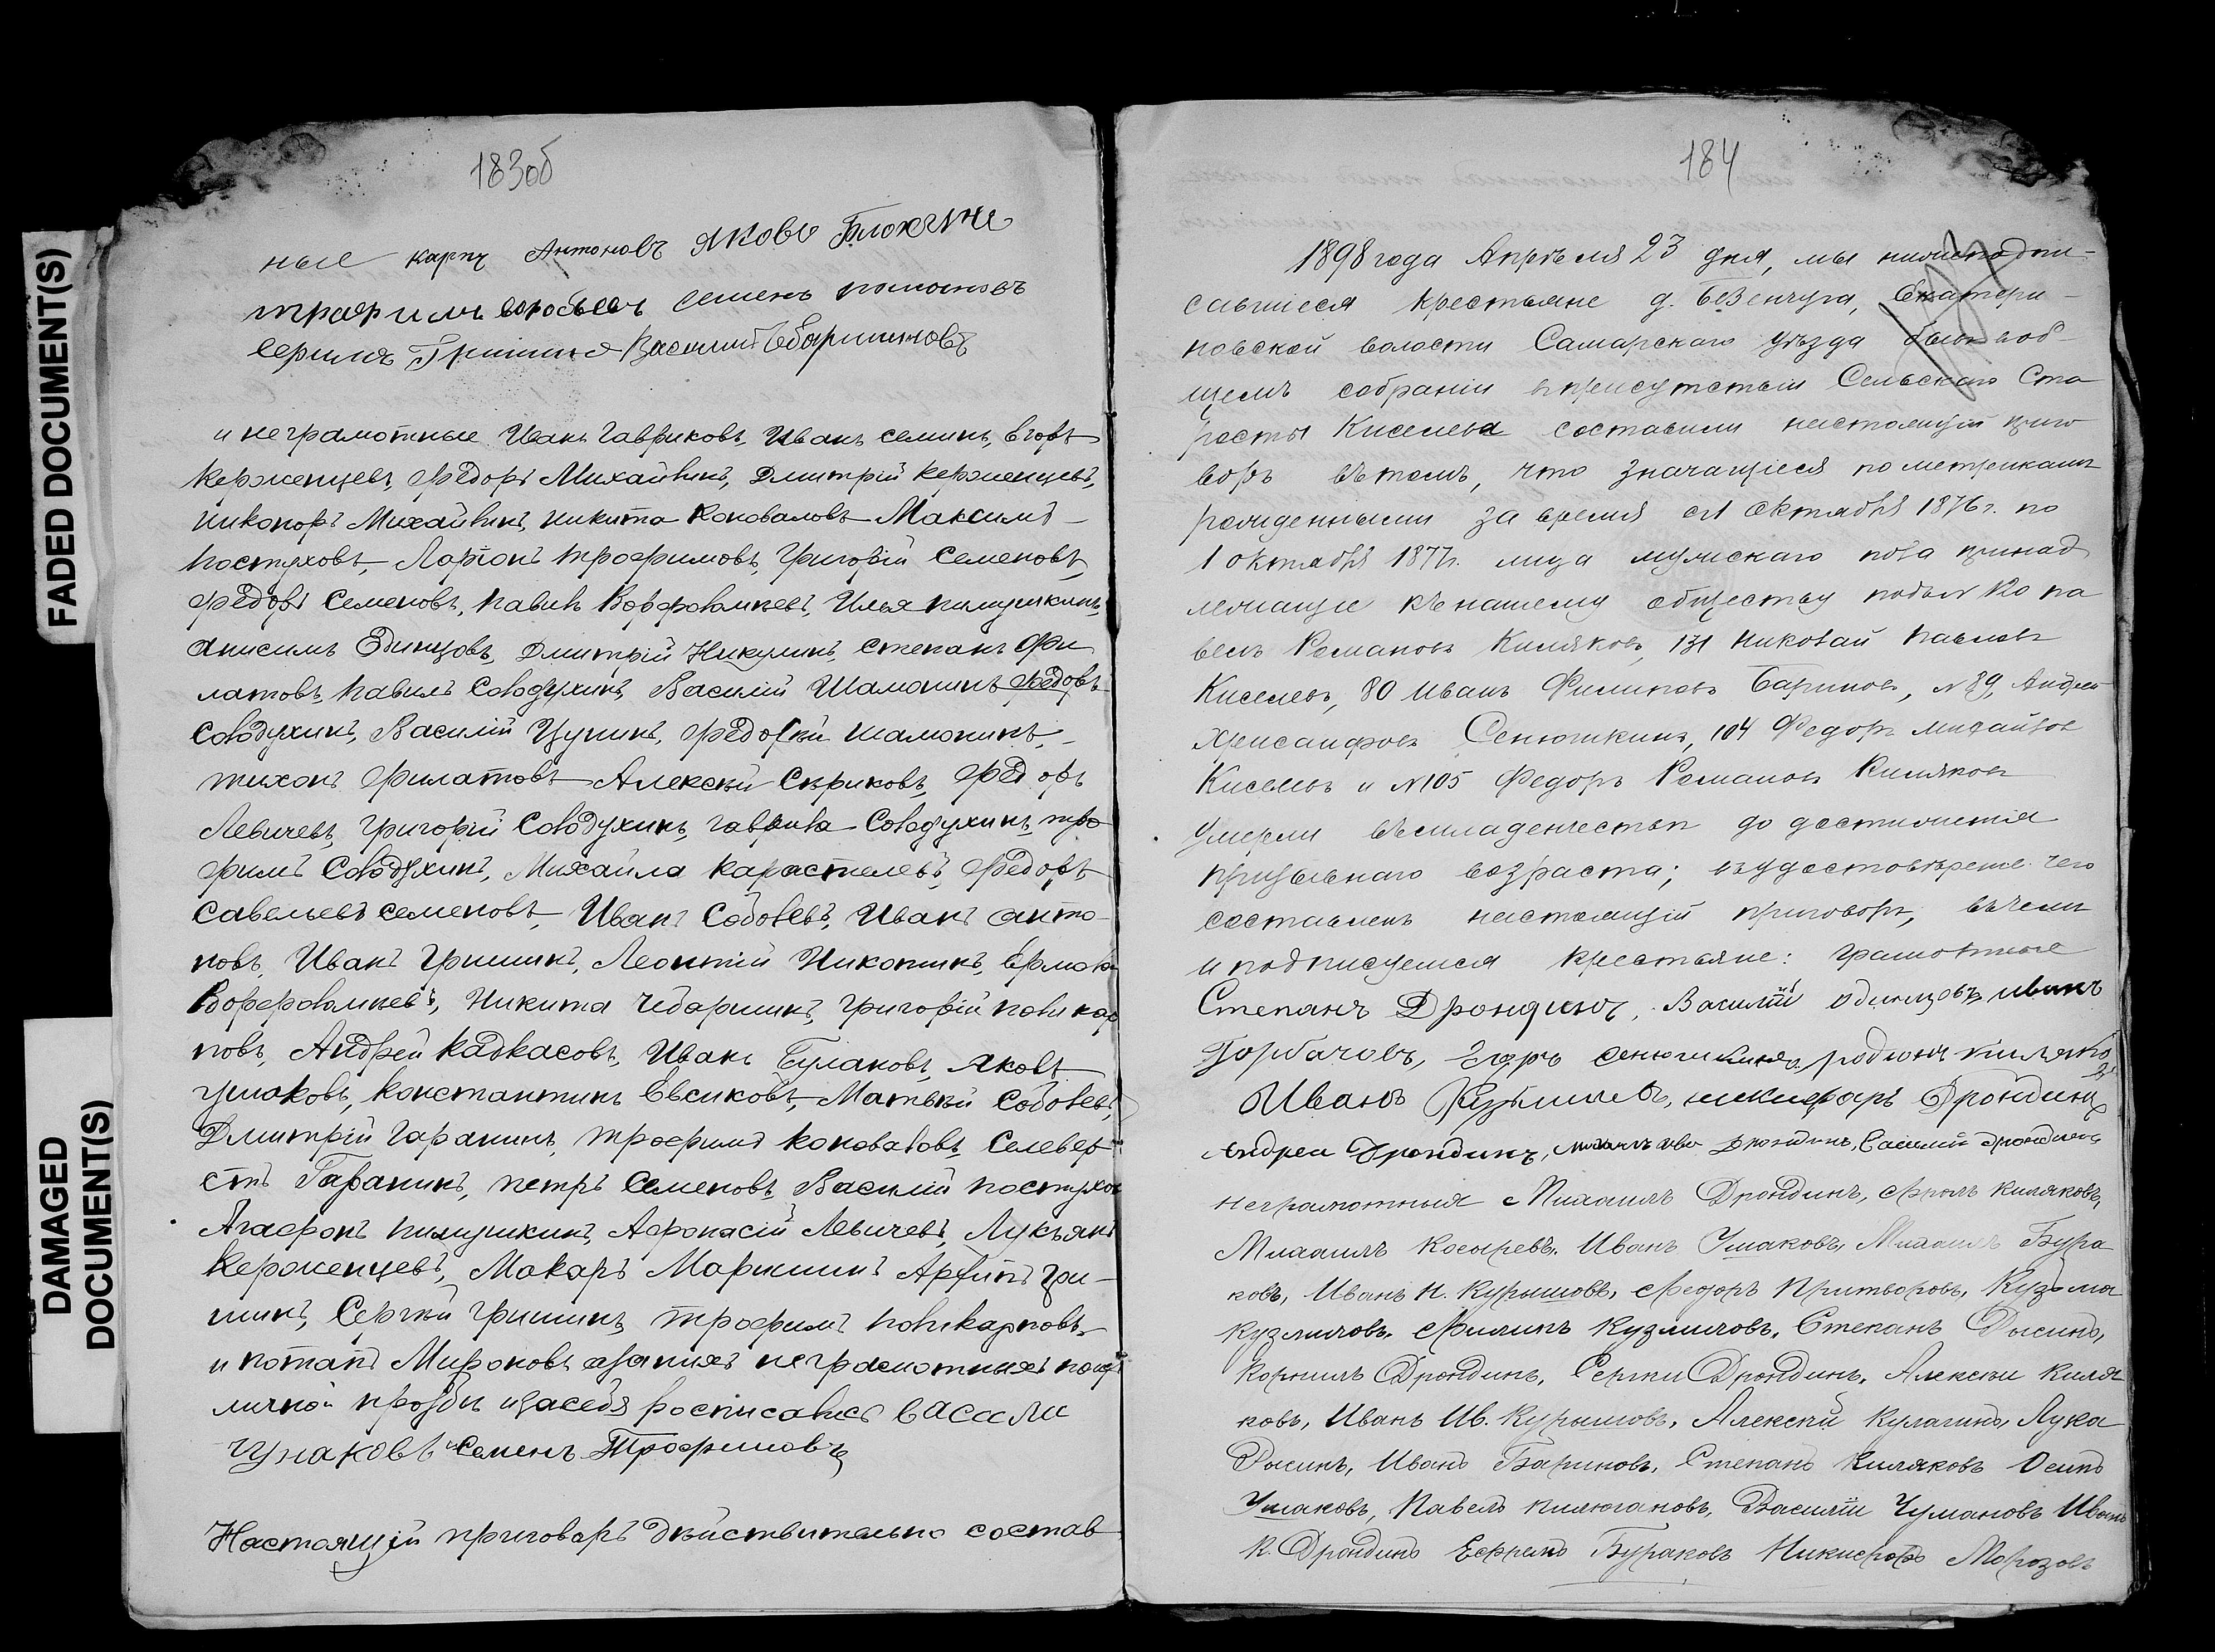 FADED DOCUMENT(S)
DAMAGED
DOCUMENT(S)
183об
ные карпъ Антоновъ Яковъ Блохине
трафимъ воробьевъ семенъ
Гришинъ Василий Чбаришновъ
и неграмотные Иванъ Гавриковъ, Иванъ семинъ, Егоръ
Керженцевъ, Федоръ Михайлинъ, Дмитрій керженцевъ,
никоноръ Михайлинъ, никита Коноваловъ Максимъ
Постуховъ, Ларіонъ трофимовъ, Григорій Семеновъ,
Федоръ Семеновъ, Павилъ Илья пимушкинъ,
Анисимъ Единцовъ, Дмитрій Никулинъ, степанъ Фи
латовъ, Павилъ Солодухинъ, Василій Шамонинъ Федоръ
Солодухинъ, Василій Цупинъ, Федосѣй шамонинъ,
тихонъ Филатовъ Алексѣй Скриковъ, Федоръ
Левичевъ, Григорій Солодухинъ, Гаврила Солодухинъ, тро
фимъ Солодухинъ, Михаила карастелевъ, Федоръ
Савельевъ семеновъ, Иванъ Соболевъ, Иванъ анто
новъ, Иванъ Гришинъ, Леонтій Никонинъ, Ермола
Никита Чебаришнъ, Григорій поликар
повъ, Андрей Кадкасовъ, Иванъ Булаковъ, Яковъ
Ушаковъ, Константинъ Евсиковъ, Матвѣй Соболевъ,
Дмитрій Гаранинъ, трофимъ Коноваловъ, Селевер
стъ Гаранинъ, петръ Семеновъ, Василій постухов
Агафонъ пимушкинъ, Афонасій Левичевъ, Лукьянъ
Керженцевъ, Макаръ Маришинъ Архипъ Гри-
шинъ, Сергѣй Гришинъ, трофимъ поликарповъ,
и потапъ Мироновъ азанихъ неграмотнихъ поих
личной прозби изасебя росписались васали
Чунаковъ Семенъ Трофимовъ
Настоящій приговаръ дѣйствительно состав
184
1898 года Апрѣля 23 дня, мы нижеподпи-
савшіеся крестьяне д. Безенчуга, Екатери-
новской волости Самарскаго уѣзда бывъ воб-
щемъ собраніи вприсутствіи Сельскаго Ста
росты Киселева составили настоящій приго
воръ вътомъ, что значащіеся пометрикамъ
рожденными за время съ1 октября 1876г. по
1 октября 1877г. лица мужскаго пола принад
лежащіе къ нашему обществу подъ № 10 па
велъ Романовъ Киляковъ, 131 Николай Павловъ
Киселевъ, 80 Иванъ Филиповъ Бариновъ, № 89, Андрей
Хрисанфовъ Сенюшкинъ, 104 Федоръ Михайлов
Киселевъ и №105 Федоръ Романовъ Киляковъ
умерли въмладенчествѣ до достиженія
призывнаго возраста; въудостовѣреніе чего
составленъ настоящій приговоръ, вчемъ
и подписуемся крестьяне: грамотные
Степанъ Дрондинъ, Василій одинцовъ иванъ
Горбачовъ, Егоръ сенюшкинъ, родионъ киляко
въ
Иванъ Кузьмичевъ, никифаръ Дрондинъ
Андреи Дрондинъ, Дрондинъ, Василий Дрондинъ
неграмотныя Михаилъ Дрондинъ, Фролъ Киляковъ,
Михаилъ Косыревъ, Иванъ Ушаковъ, Михаилъ Бура
ковъ, Иванъ Н. Курышовъ, Федоръ Притворовъ, Кузьма
Кузмичовъ, Филипъ Кузмичовъ, Степанъ Рысинъ,
Корнилъ Дрондинъ, Сергѣи Дрондинъ, Алексѣи Киля
ковъ, Иванъ Ив. Курышовъ, Алексѣй Кулагинъ, Лука
Рысинъ, Иванъ Бариновъ, Степанъ Киляковъ Осипъ
Ушаковъ, Павелъ пилюгановъ, Василій Чумановъ Иванъ
К. Дрондинъ Ефремъ Бураковъ Никифоръ Морозовъ